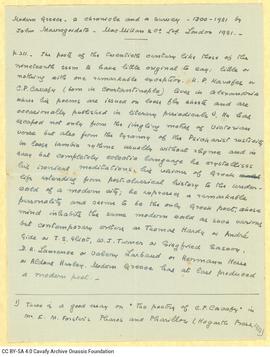 Modern Greece. a chronicle and a survey - 1800-1931 by
John Mavrogordato - MacMillan & Co Ltd London 1931.-
p.211. The poets of the twentieth century like those of the
nineteenth seem to have little original to say; little or
nothing with one remarkable exception. K. P. Kavafes or
C.P. Cavafy (born in Constantinople) lives in Alexandria
where his poems are issued on loose fly sheets and are
occasionally published in literary periodicals. 1) He has
escaped not only from the jingling metres of Victorian
verse but also from the tyranny of the
in loose iambic rhythms usually without rhyme and in
easy but completely eclectic language he crystallises
his ironical meditations, his visions of Greek
life extending from post-classical history to the under-
world of a modern city; he expresses a remarkable
personality and seems to be the only Greek poet, whose
mind inhabits the same modern world as such various
but contemporary writers as Thomas Hardy or André
Gide or T. S. Eliot, W. J. Turner or Siegfried Sassoon,
D. H. Lawrence or Valery Larbaud or Hermann Hesse
or Aldous Huxley. Modern Greece has at last produced
a modern poet.-
1) There is a good essay on "the poetry of C. P. Cavafy" in
Mr E. M. Forster's Pharos and Pharillon (Hogarth Press
CC BY-SA 4.0 Cavafy Archive Onassis Foundation